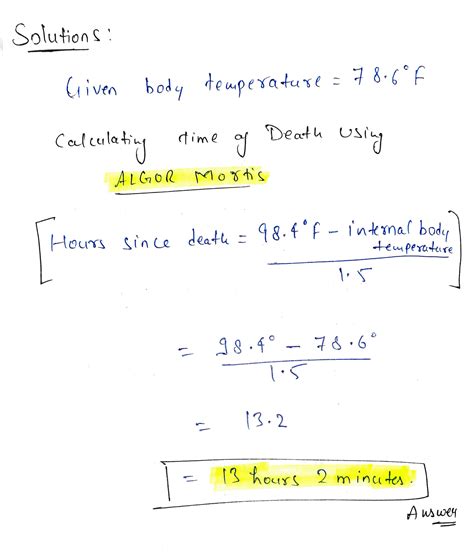 Solutions:
Given body temperature = 78.6°F
Calculating time of Death using
ALGOR MORTIS
Hours since death = 98.4°F - internal body temperature
1.5
= 98.4° - 78.6°
1.5
= 13.2
= 13 hours 2 minutes.
Answer